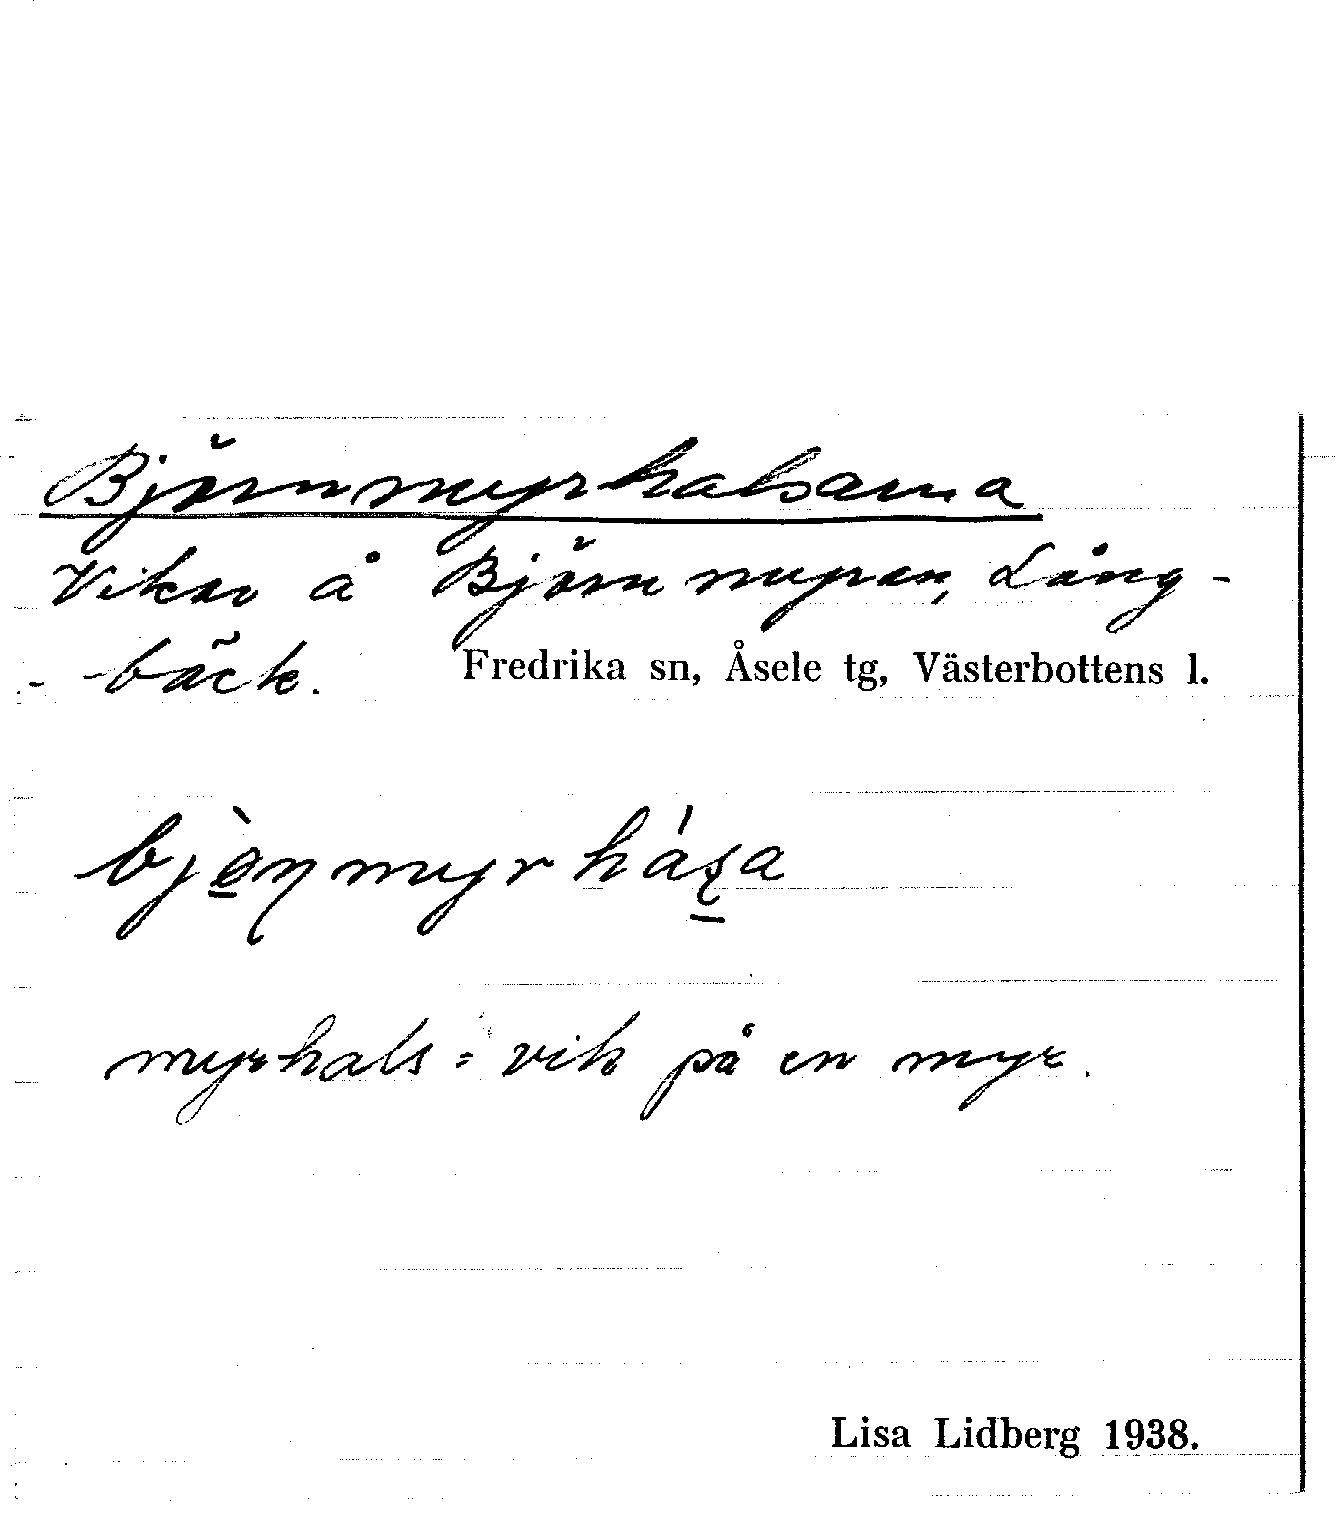 Björnmyrhalsarna
Vikar å Björnmyran, Lång-
bäck. Fredrika sn, Åsele tg, Västerbottens l.
myrhals = vik på en myr.
Lisa Lidberg 1938.